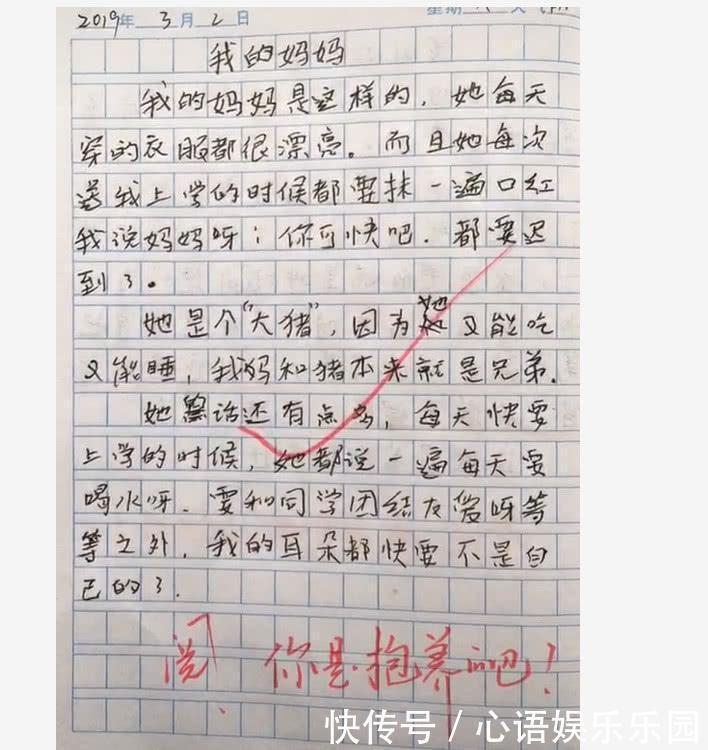 2019年 3月 2日 星期
我的妈妈
我的妈妈是这样的，她每天
穿的衣服都很漂亮。而且她每次
送我上学的时候都要抹一遍口红
我说妈妈呀；你可快吧．都要迟
到了。
她是个“大猪”，因为她又能吃
又能睡，我妈和猪本来就是兄弟．
她话还有点多，每天快要
上学的时候，她都说一遍每天要
喝水呀．要和同学团结友爱呀等
等之外，我的耳朵都快要不是自
己的了．
阅 你是抱养的吧！
快传号 / 心语娱乐乐园